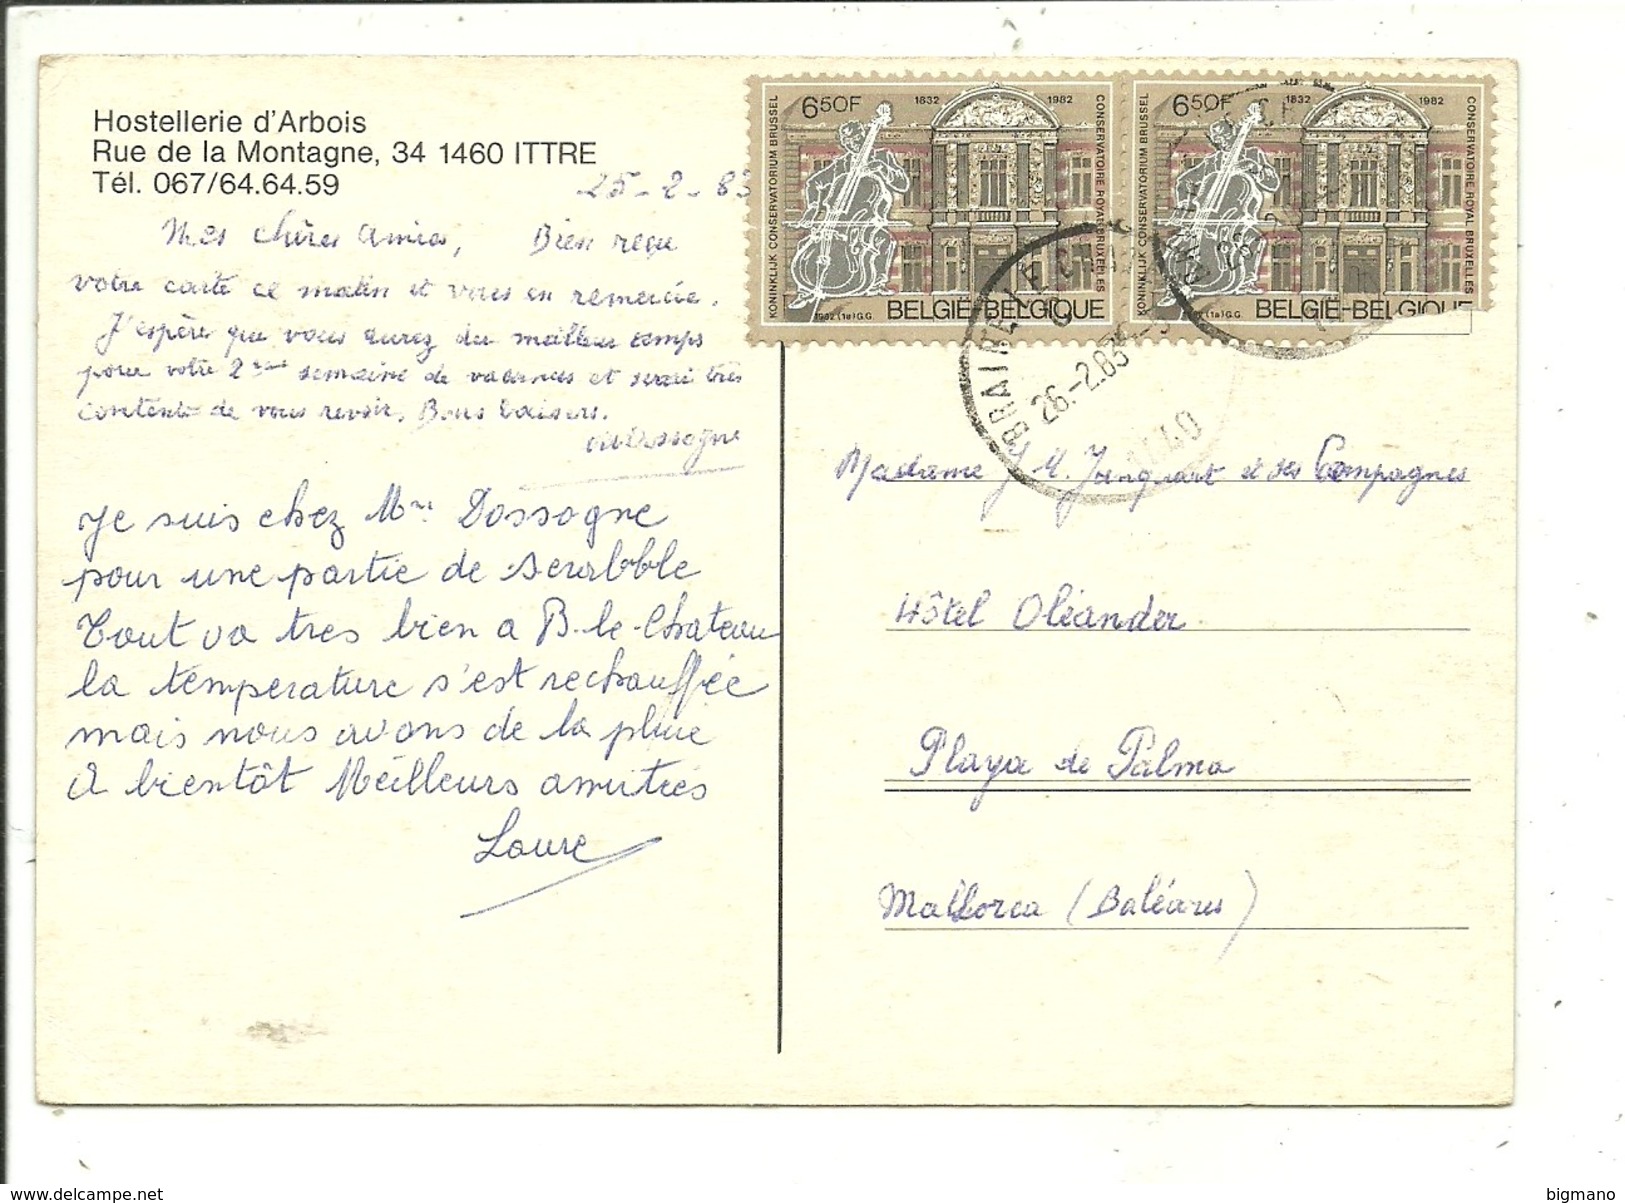 Hostellerie d'Arbois
Rue de la Montagne, 34 1460 ITTRE
Tél. 067/64.64.59
25-2-83
Mes chères Amies, Bien reçu
votre carte ce matin et vous en remercie.
J'espère que vous aurez du meilleur temps
pour votre 2ème semaine de vacances et serai très
contente de vous revoir. Bons baisers.
Dossogne
Je suis chez Mme Dossogne
pour une partie de scrabble
Tout va tres bien a B.-le-Chateau
la température s'est rechauffée
mais nous avons de la pluie
A bientôt Meilleurs amitiés
Laure
KONINKLIJK CONSERVATORIUM BRUSSEL
650F
1832 1982
CONSERVATOIRE ROYAL BRUXELLES
1982 (1a) G.G.
BELGIË-BELGIQUE
KONINKLIJK CONSERVATORIUM BRUSSEL
650F
1832 1982
CONSERVATOIRE ROYAL BRUXELLES
(1a) G.G.
BELGIË-BELGIQUE
BRAINE-LE-CHA
26.-2.83
1440
Madame J.M. Janquart et ses Compagnes
Hôtel Oléander
Playa de Palma
Mallorca (Baléares)
www.delcampe.net
bigmano